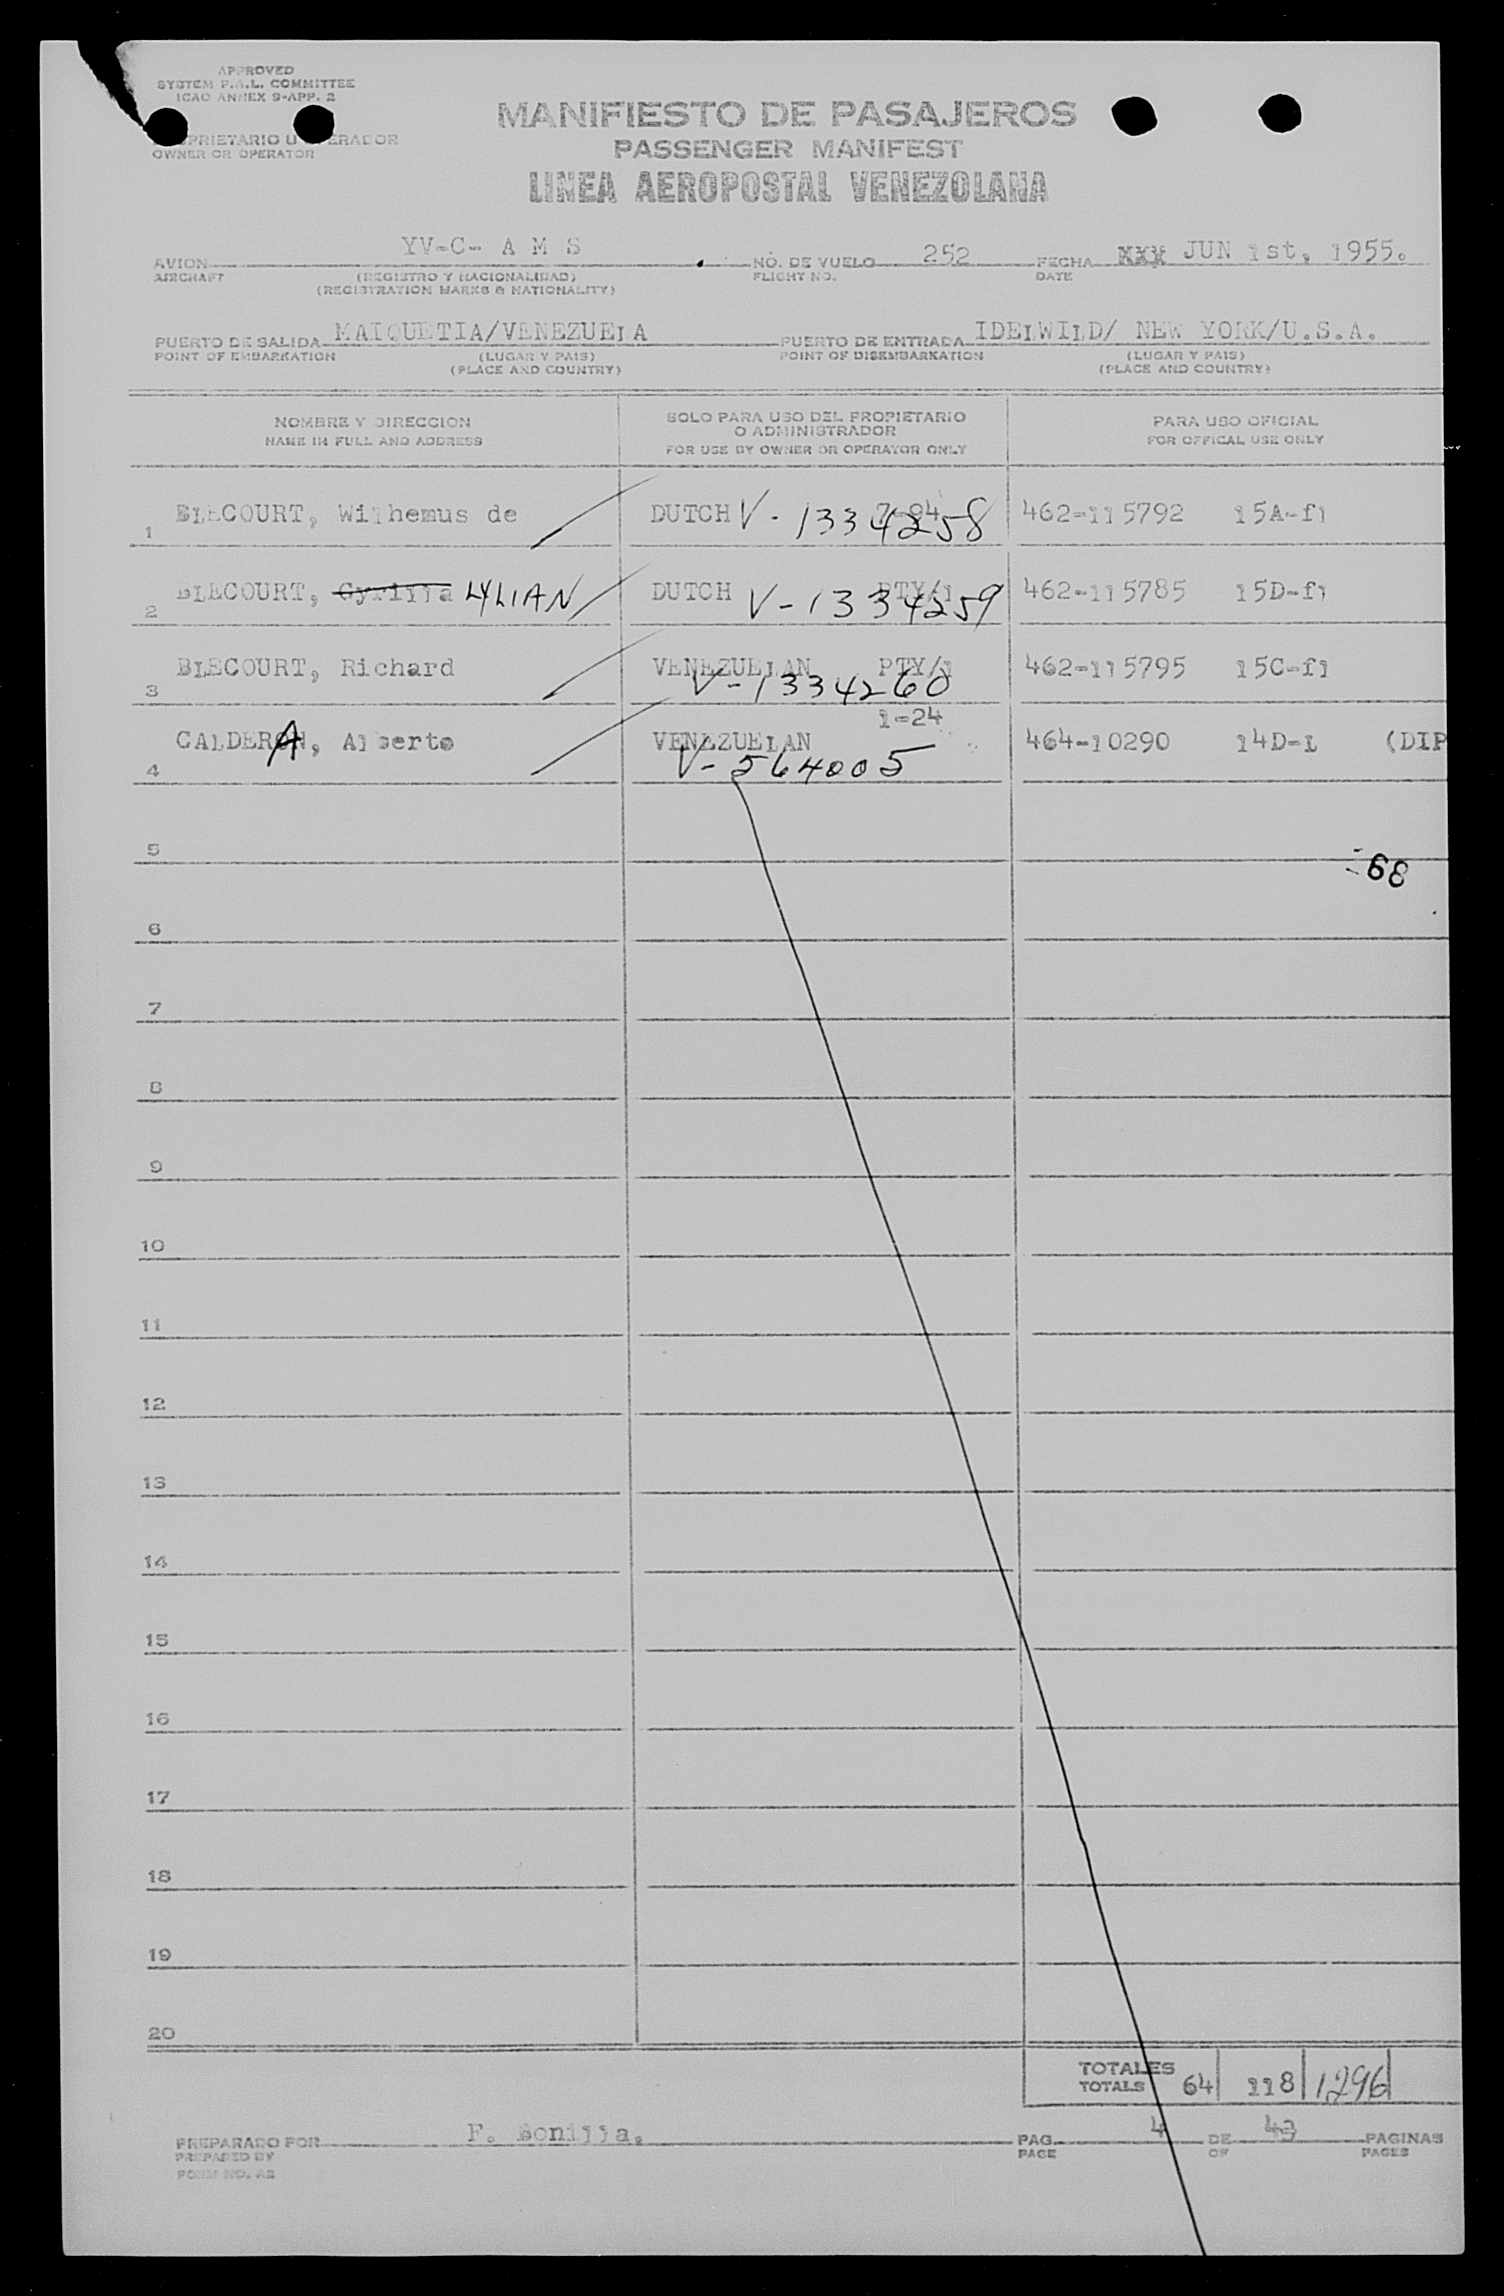 APPROVED
SYSTEM F.A.L. COMMITTEE
ICAO ANNEX 9-APP. 2
MANIFIESTO DE PASAJEROS
PASSENGER MANIFEST
LINEA AEROPOSTAL VENEZOLANA
OWNER OR OPERATOR
AVION YV-C- A M S NO. DE VUELO 252 FECHA XXX JUN 1st, 1955.
AIRCRAFT (REGISTRO Y NACIONALIDAD) FLIGHT NO. DATE
(REGISTRATION MARKS & NATIONALITY)
PUERTO DE SALIDA MAIQUETIA/VENEZUELA PUERTO DE ENTRADA IDELWILD/ NEW YORK/U.S.A.
POINT OF EMBARKATION (LUGAR Y PAIS) POINT OF DISEMBARKATION (LUGAR Y PAIS)
(PLACE AND COUNTRY) (PLACE AND COUNTRY)
NOMBRE Y DIRECCION SOLO PARA USO DEL PROPIETARIO PARA USO OFICIAL
O ADMINISTRADOR
NAME IN FULL AND ADDRESS FOR USE BY OWNER OR OPERATOR ONLY FOR OFFICAL USE ONLY
1 BLECOURT, Wilhemus de DUTCH V-1334258 462-115792 15A-fl
2 BLECOURT, LYLIAN DUTCH PTY/1 462-115785 15D-fl
V-1334259
3 BLECOURT, Richard VENEZUELAN PTY/1 462-115795 15C-fl
V-1334260
1-24
4 CALDERA, Alberto VENEZUELAN 464-10290 14D-L (DIP
V-564005
5
68
6
7
8
9
10
11
12
13
14
15
16
17
18
19
20
TOTALES
TOTALS 64 118 1296
PREPARADO POR F. Bonilla. PAG. 4 DE 43 PAGINAS
PREPARED BY PAGE OF PAGES
FORM NO. A2